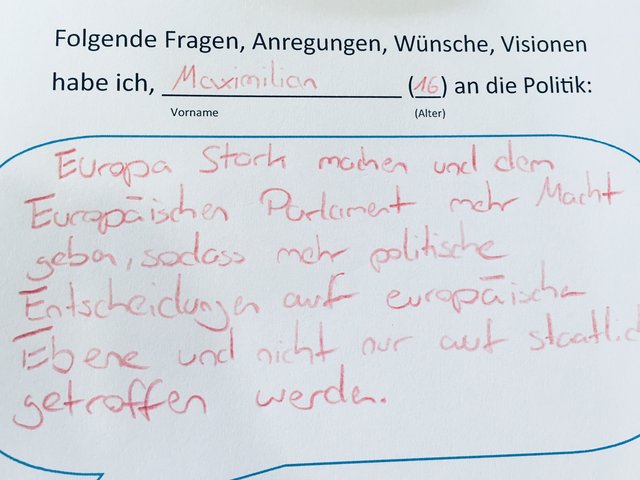 Folgende Fragen, Anregungen, Wünsche, Visionen
habe ich, Maximilian (16) an die Politik:
Vorname (Alter)
Europa Stark machen und dem
Europäischen Parlament mehr Macht
geben, sodass mehr politische
Entscheidungen auf europäische
Ebene und nicht nur auf staatlich
getroffen werden.